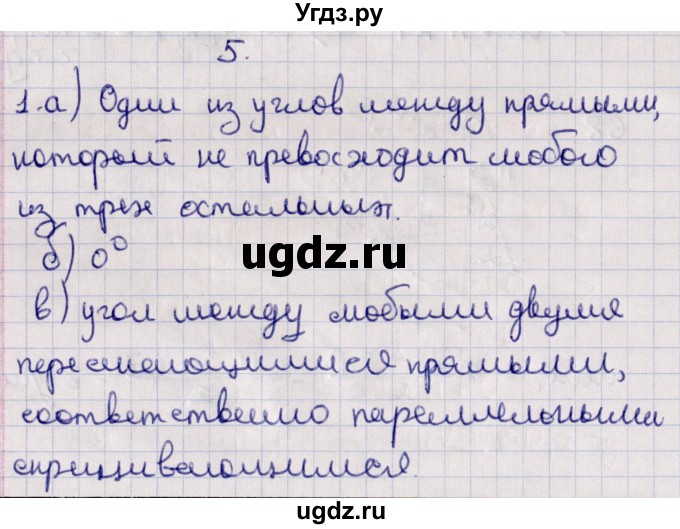 Угдз.ру
5.
1. а) Один из углов между прямыми,
который не превосходит любого
из трех остальных.
ugdz.ru
б) 0°
в) угол между любыми двумя
пересекающимися прямыми,
соответственно параллельными
скрещивающимися.
ugdz.ru